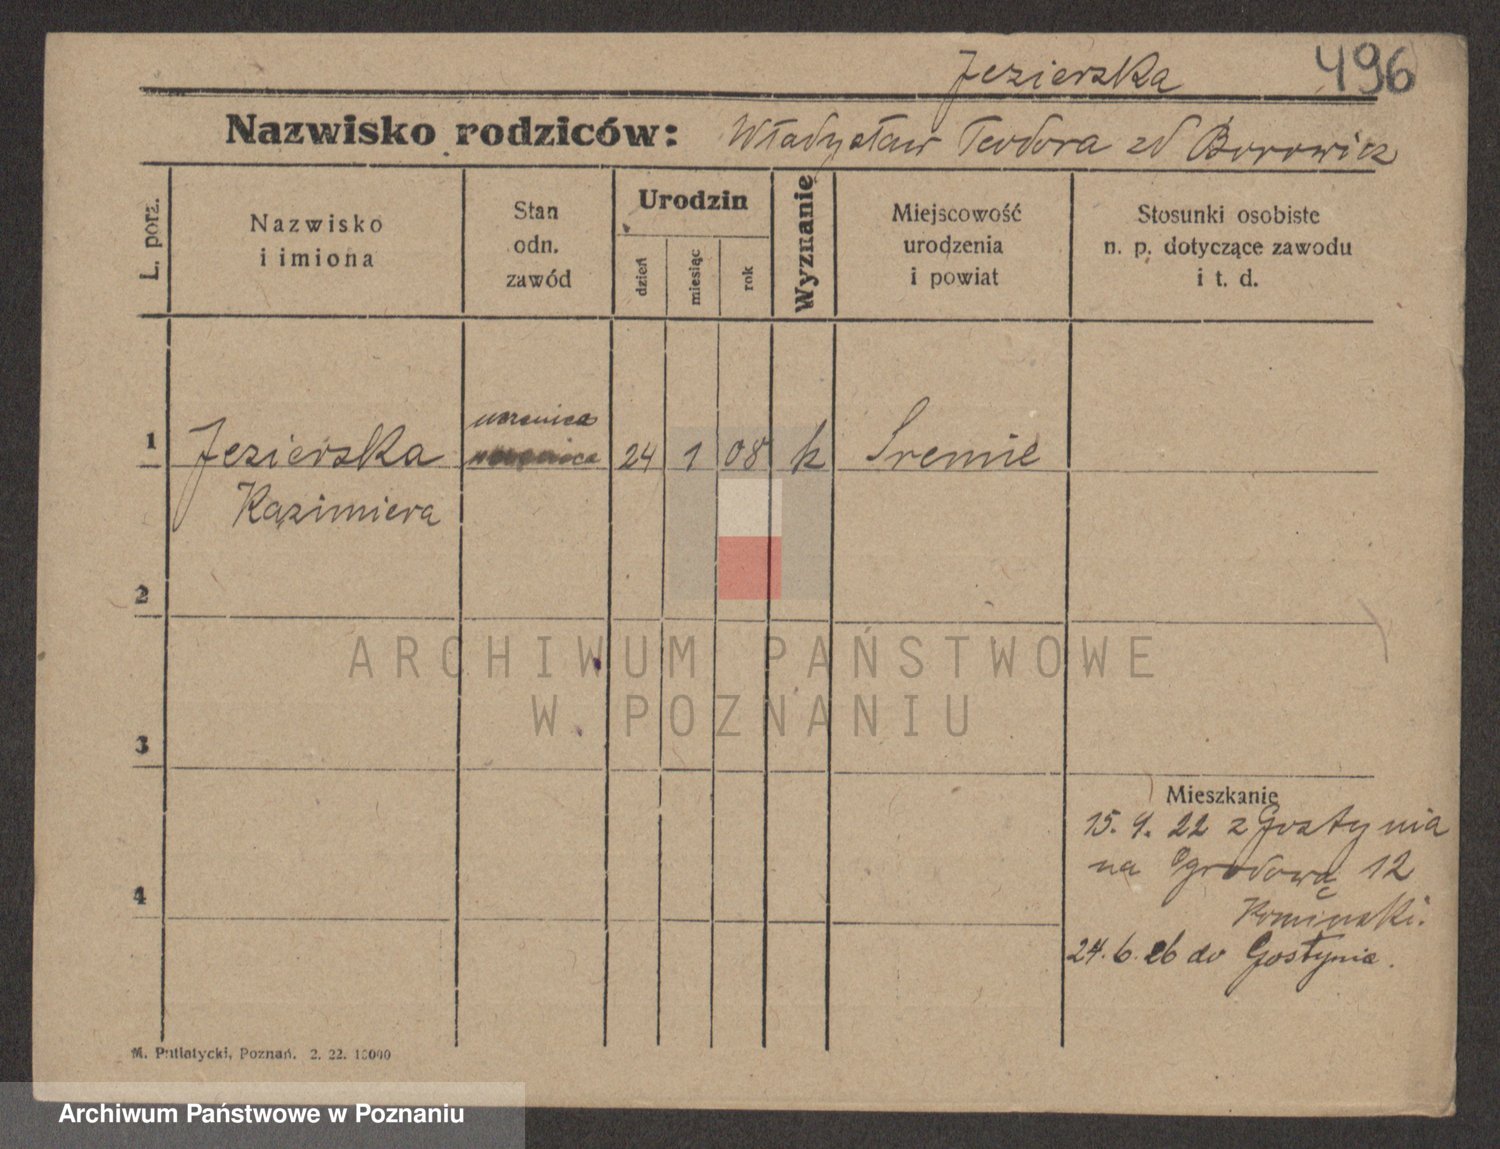 Jezierska 496
Nazwisko rodziców: Władysław Teodora zd Borowicz
L. porz.
Nazwisko
i imiona
Stan
odn.
zawód
Urodzin
dzień
miesiąc
rok
Wyznanie
Miejscowość
urodzenia
i powiat
Stosunki osobiste
n. p. dotyczące zawodu
i t. d.
uczenica
1 Jezierska 24 1 08 k Sremie
Kazimiera
2
ARCHIWUM PAŃSTWOWE
W POZNANIU
3
Mieszkanie
15. 9. 22 z Gostynia
na Ogrodową 12
4
24. 6. 26 do Gostynia.
M. Putiatycki, Poznań. 2. 22. 10000
Archiwum Państwowe w Poznaniu